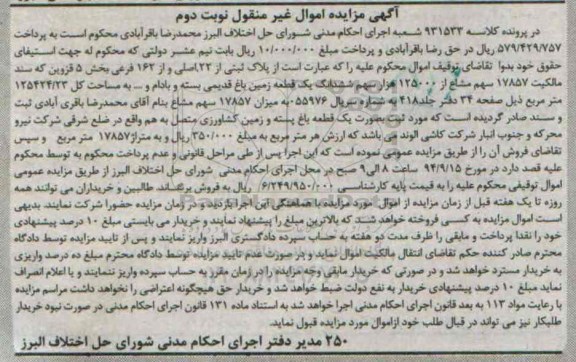 آگهی مزایده اموال غیر منقول نوبت دوم
در پرونده کلاسه ۹۳۱۵۳۳ شعبه اجرای احکام مدنی شورای حل اختلاف البرز محمدرضا باقرآبادی محکوم است به پرداخت
۵۷۹/۴۲۹/۷۵۷ ریال در حق رضا باقرآبادی و پرداخت مبلغ ۱۰/۰۰۰/۰۰۰ ریال بابت نیم عشر دولتی که محکوم له جهت استیفای
حقوق خود بدوا تقاضای توقیف اموال محکوم علیه را که عبارت است از پلاک ثبتی از ۲۲اصلی و از ۱۶۲ فرعی بخش ۵ قزوین که سند
مالکیت ۱۷۸۵۷ سهم مشاع از ۱۲۵۰۰۰ هزار سهم ششدانگ یک قطعه زمین باغ قدیمی بسته و بادام و ... به مساحت کل ۱۲۵۴۲۴/۲۳
متر مربع ذیل صفحه ۳۴ دفتر جلد۴۱۸ به شماره سریال ۵۵۹۷۶ به میزان ۱۷۸۵۷ سهم مشاع بنام آقای محمدرضا باقری آبادی ثبت
و سند صادر گردیده است که مورد ثبت بصورت یک قطعه باغ پسته و زمین کشاورزی متصل به هم واقع در ضلع شرقی شرکت نیرو
محرکه و جنوب انبار شرکت کاشی الوند می باشد که ارزش هر متر مربع به مبلغ ۳۵۰/۰۰۰ ریال و به متراژ۱۷۸۵۷ متر مربع و سپس
تقاضای فروش آن را از طریق مزایده عمومی نموده است که این اجرا پس از طی مراحل قانونی و عدم پرداخت محکوم به توسط محکوم
علیه قصد دارد در مورخ ۹۴/۹/۱۵ ساعت ۸ الی۹ صبح در محل اجرای احکام مدنی شورای حل اختلاف البرز از طریق مزایده عمومی
اموال توقیفی محکوم علیه را به قیمت پایه کارشناسی ۶/۲۴۹/۹۵۰/۰۰۰ ریال به فروش برساند. طالبین و خریداران می توانند همه
روزه تا یک هفته قبل از زمان مزایده از اموال مورد مزایده با هماهنگی این اجرا بازدید و در زمان مزایده حضورا شرکت نمایند. بدیهی
است اموال مزایده به کسی فروخته خواهد شد که بالاترین مبلغ را پیشنهاد نمایند و خریدار می بایستی مبلغ ۱۰ درصد پیشنهادی
خود را نقدا پرداخت و مابقی را ظرف مدت دو هفته به حساب سپرده دادگستری البرز واریز نمایند و پس از تایید مزایده توسط دادگاه
محترم صادر کننده حکم تقاضای انتقال مالکیت اموال نماید و در صورت عدم تایید مزایده توسط دادگاه محترم مبلغ ده درصد واریزی
به خریدار مسترد خواهد شد و در صورتی که خریدار مابقی وجه مزایده را در زمان مقرر به حساب سپرده واریز ننمایند و یا اعلام انصراف
نماید مبلغ ۱۰ درصد پیشنهادی خریدار به نفع دولت ضبط خواهد شد و خریدار حق هیچگونه اعتراضی را نخواهد داشت مراسم مزایده
با رعایت مواد ۱۱۳ به بعد قانون اجرای احکام مدنی اجرا خواهد شد به استناد ماده ۱۳۱ قانون اجرای احکام مدنی در صورت نبود خریدار
طلبکار نیز می تواند در قبال طلب خود ازاموال مورد مزایده قبول نماید.
۲۵۰ مدیر دفتر اجرای احکام مدنی شورای حل اختلاف البرز